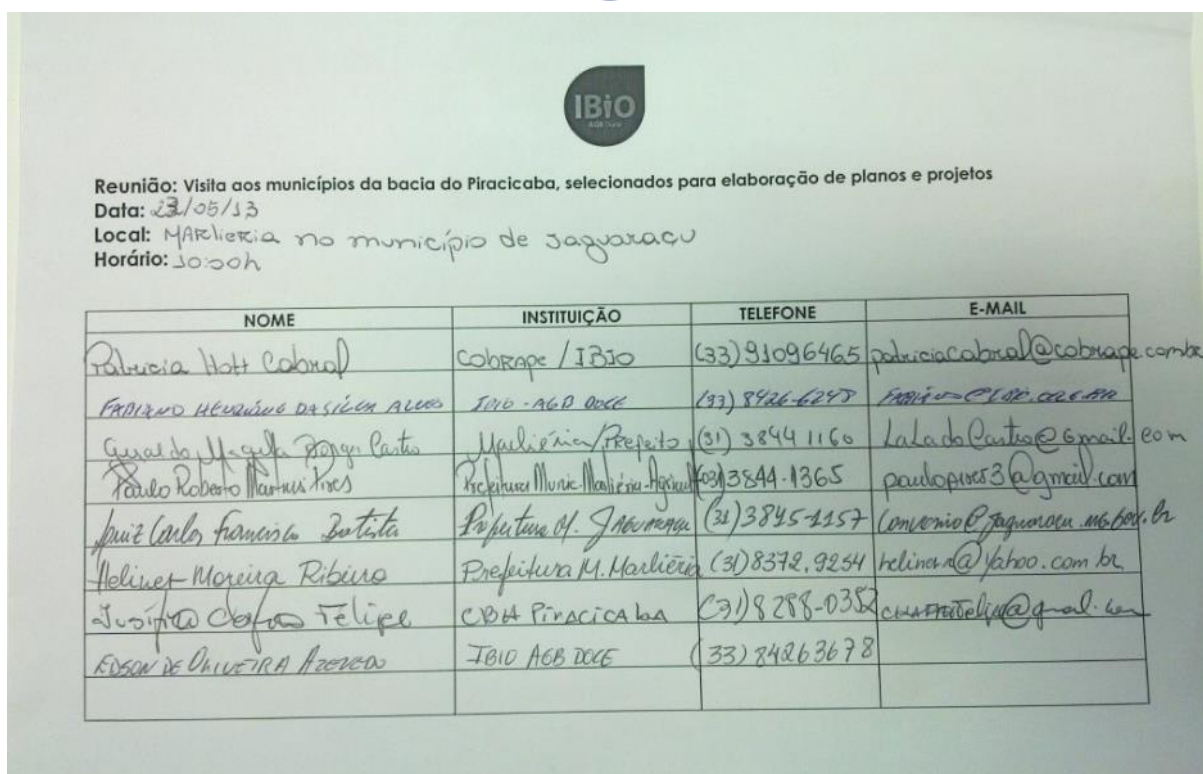 IBiO
AGB Doce
Reunião: Visita aos municípios da bacia do Piracicaba, selecionados para elaboração de planos e projetos
Data: 23/05/13
Local: MARlieRia no município de Jaguaraçu
Horário: 10:00h
NOME INSTITUIÇÃO TELEFONE E-MAIL
Patricia Hott Cabral Cobrape / IBIO (33) 91096465 patriciacabral@cobrape.com.br
FABIANO HENRIQUE DA SILVA ALVES IBIO - AGB DOCE (33) 8426-6248
Geraldo Magela Borges Castro Marliéria/Prefeito (31) 3844 1160 Lalado Castro@Gmail.com
Paulo Roberto Martins Pires Prefeitura Munic. Marliéria- 3844-1365 paulopires3@gmail.com
Luiz Carlos Francisco Batista Prefeitura M. JAGUARAÇU (31) 3845-1157 Convenio@jaguaracu.mg.gov.br
Heliner Moreira Ribeiro Prefeitura M. Marliéria (31) 8372.9254 @yahoo.com.br
Felipe CBH PirACiCAbA (31) 8288-0352
EDSON DE OLIVEIRA AZEVEDO IBIO AGB DOCE (33) 84263678